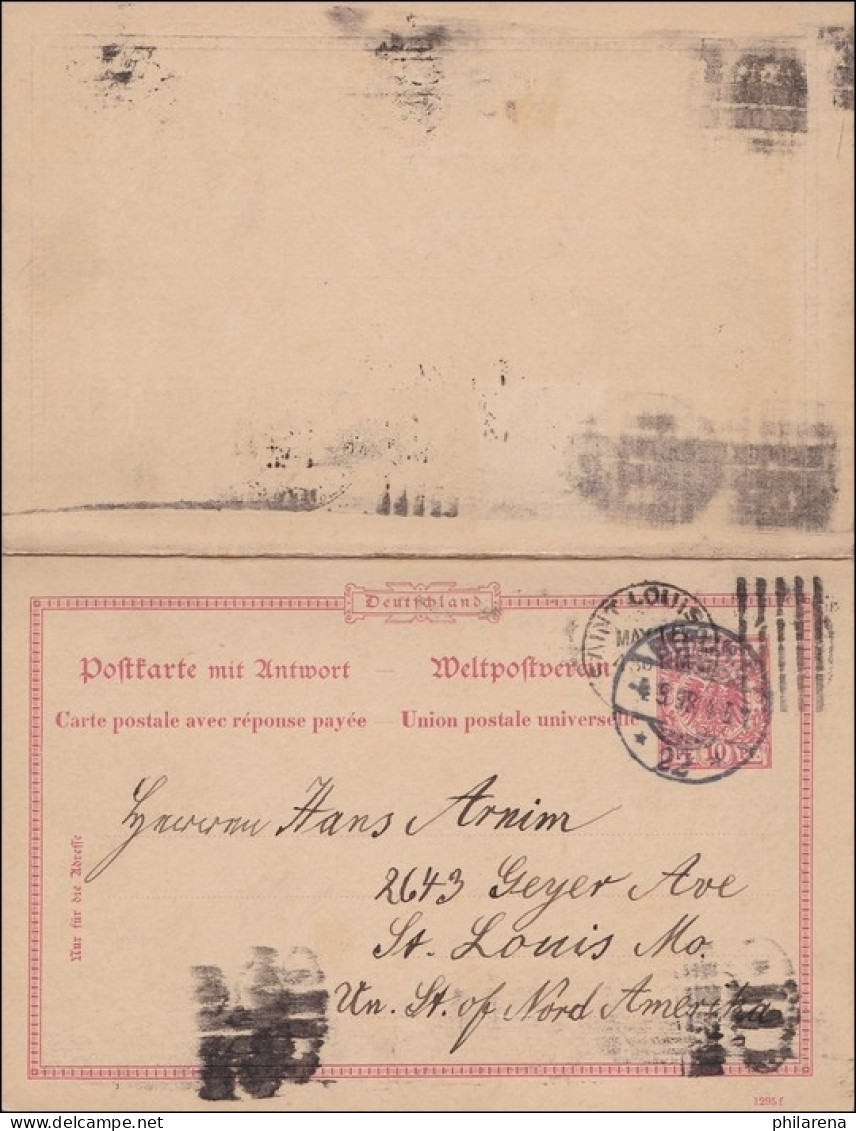 Deutschland
Postkarte mit Antwort — Weltpostverein
Carte postale avec réponse payée — Union postale universelle
SAINT LOUIS
MAY
4 5 98
22
10 PF.
Nur für die Adresse
Herrren Hans Arnim
2643 Geyer Ave
St. Louis Mo.
Un. St. of Nord Amerika
1295 f
philarena